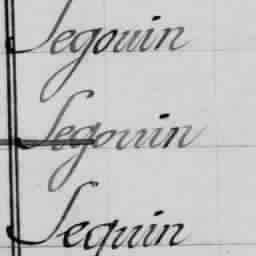 Segouin
Segouin
Seguin